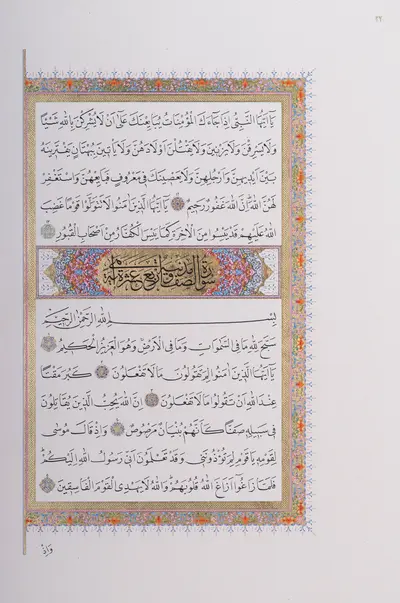 ٢٦
يَا أَيُّهَا النَّبِيُّ إِذَا جَاءَكَ الْمُؤْمِنَاتُ يُبَايِعْنَكَ عَلَى أَنْ لَا يُشْرِكْنَ بِاللَّهِ شَيْئًا
وَلَا يَسْرِقْنَ وَلَا يَزْنِينَ وَلَا يَقْتُلْنَ أَوْلَادَهُنَّ وَلَا يَأْتِينَ بِبُهْتَانٍ يَفْتَرِينَهُ
بَيْنَ أَيْدِيهِنَّ وَأَرْجُلِهِنَّ وَلَا يَعْصِينَكَ فِي مَعْرُوفٍ فَبَايِعْهُنَّ وَاسْتَغْفِرْ
لَهُنَّ اللَّهَ إِنَّ اللَّهَ غَفُورٌ رَحِيمٌ يَا أَيُّهَا الَّذِينَ آمَنُوا لَا تَتَوَلَّوْا قَوْمًا غَضِبَ
اللَّهُ عَلَيْهِمْ قَدْ يَئِسُوا مِنَ الْآخِرَةِ كَمَا يَئِسَ الْكُفَّارُ مِنْ أَصْحَابِ الْقُبُورِ
سورة الصف مدنية وهي اربع عشرة آية
بِسْمِ اللَّهِ الرَّحْمَنِ الرَّحِيمِ
سَبَّحَ لِلَّهِ مَا فِي السَّمَاوَاتِ وَمَا فِي الْأَرْضِ وَهُوَ الْعَزِيزُ الْحَكِيمُ
يَا أَيُّهَا الَّذِينَ آمَنُوا لِمَ تَقُولُونَ مَا لَا تَفْعَلُونَ كَبُرَ مَقْتًا
عِنْدَ اللَّهِ أَنْ تَقُولُوا مَا لَا تَفْعَلُونَ إِنَّ اللَّهَ يُحِبُّ الَّذِينَ يُقَاتِلُونَ
فِي سَبِيلِهِ صَفًّا كَأَنَّهُمْ بُنْيَانٌ مَرْصُوصٌ وَإِذْ قَالَ مُوسَى
لِقَوْمِهِ يَا قَوْمِ لِمَ تُؤْذُونَنِي وَقَدْ تَعْلَمُونَ أَنِّي رَسُولُ اللَّهِ إِلَيْكُمْ
فَلَمَّا زَاغُوا أَزَاغَ اللَّهُ قُلُوبَهُمْ وَاللَّهُ لَا يَهْدِي الْقَوْمَ الْفَاسِقِينَ
وَإِذْ